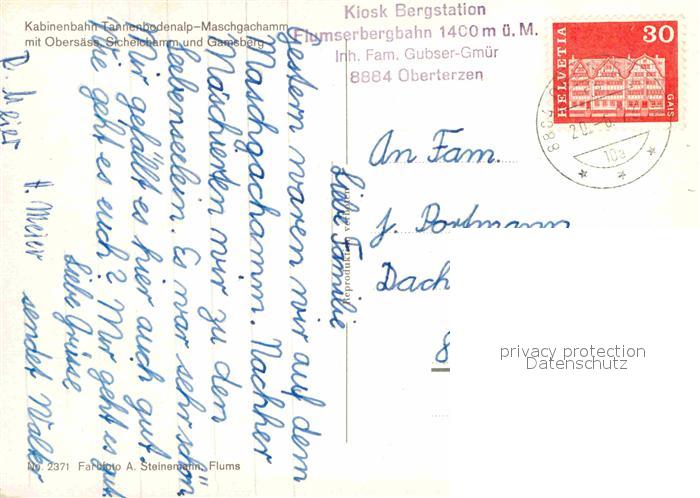 Kabinenbahn Tannenbodenalp–Maschgachamm
mit Obersäss, Sichelchamm und Gamsberg
Kiosk Bergstation
Flumserbergbahn 1400 m ü. M.
Inh. Fam. Gubser-Gmür
8884 Oberterzen
HELVETIA
30
GAIS
10a
Liebe Familie
Gestern waren wir auf dem
Maschgachamm. Nachher
Maschierten wir zu den
Seebenseelein. Es war sehr schön
Mir gefällt es hier auch gut.
Wie geht es euch? Mir geht es gut.
Liebe Grüsse
sendet Walter
H. Meier
D. Meier
An Fam.
J. Portmann
Dach
8
Reproduktion verboten
No. 2371 Farbfoto A. Steinemann, Flums
privacy protection
Datenschutz